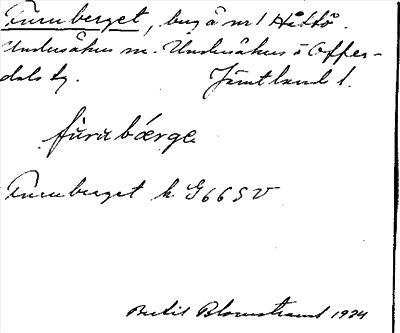 Furuberget, bug å nr 1 Håttö.
Undersåkers sn. Undersåkers o Offer-
dals tg. Jämtland l.
furubærge
Furuberget k. G 66 S V
Bertil Blomstrand 1924